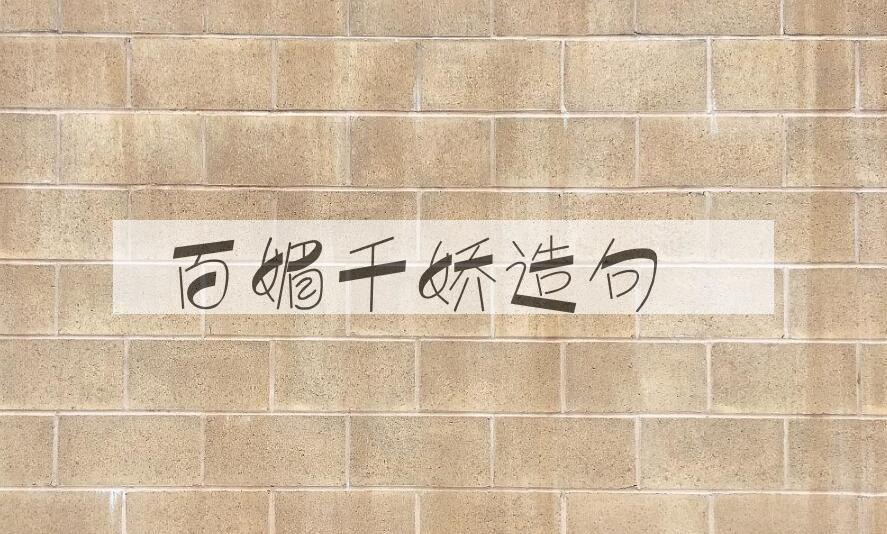 百媚千娇造句